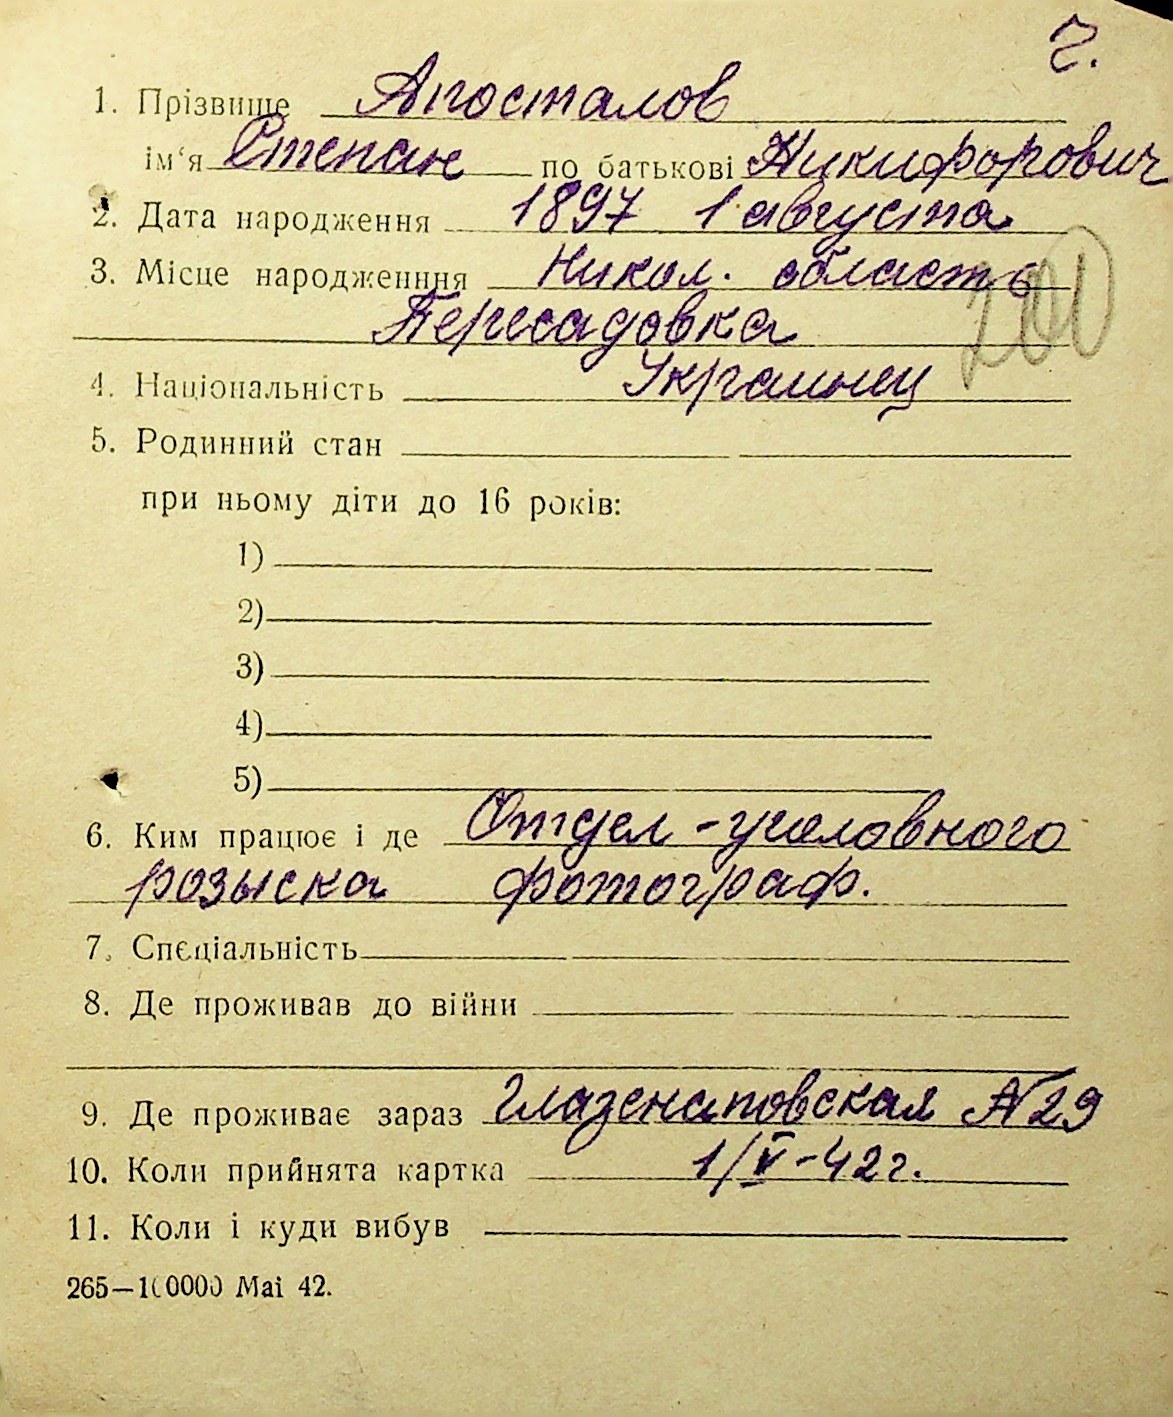 г.
1. Прізвище Апосталов
ім‘я Степан по батькові Никифорович
2. Дата народження 1897 1 августа
3. Місце народженння Никол. область
Пересадовка
200
4. Національність Украинец
5. Родинний стан
при ньому діти до 16 років:
1)
2)
3)
4)
5)
6. Ким працює і де Отдел - уголовного
розыска фотограф.
7. Спеціальність
8. Де проживав до війни
9. Де проживає зараз Глазенаповская № 29
10. Коли прийнята картка 1/V-42г.
11. Коли і куди вибув
265—100000 Mai 42.